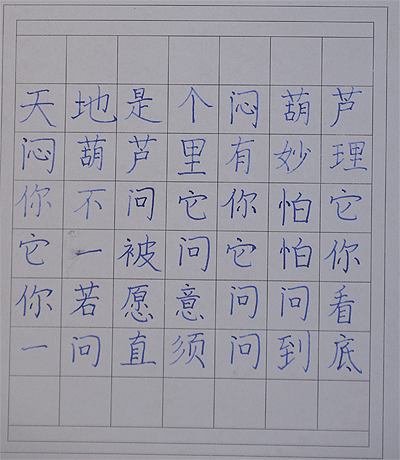 天地是个闷葫芦
闷葫芦里有妙理
你不问它你怕它
它一被问它怕你
你若愿意问问看
一问直须问到底